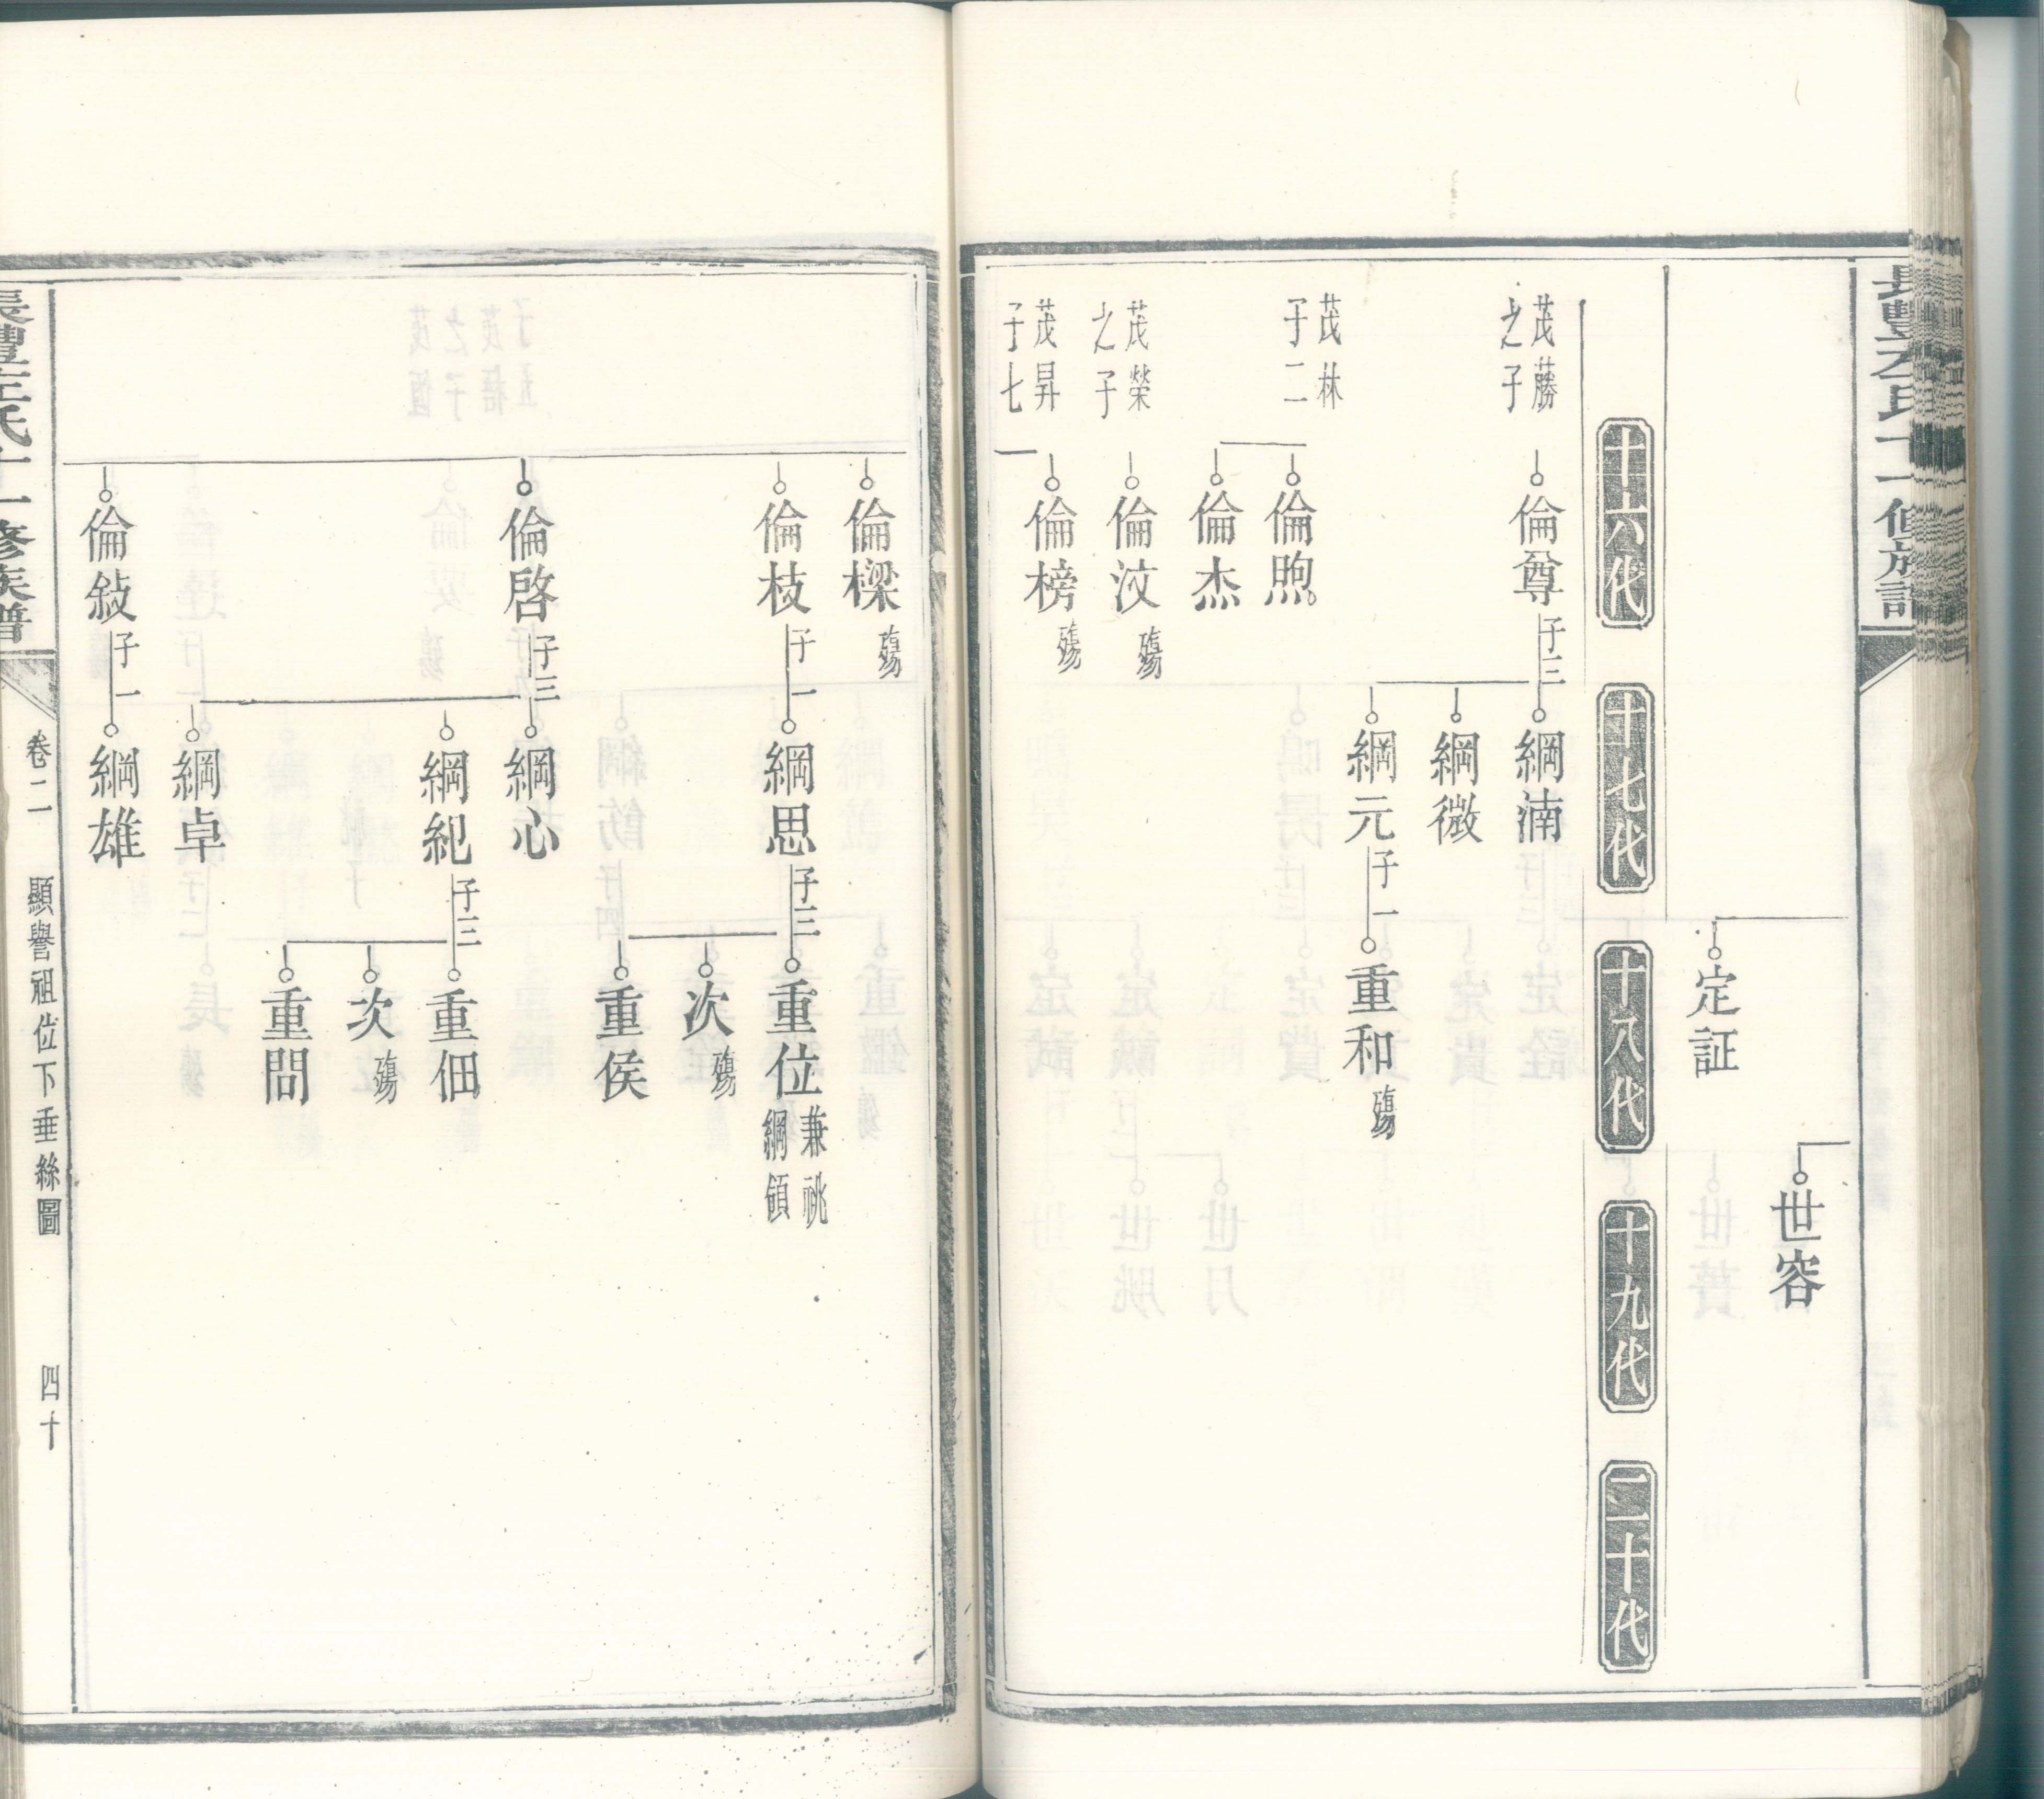 世容
定証
十六代
十七代
十八代
十九代
二十代
茂藤
之子
倫尊
子三
綱湳
綱微
綱元
子一
重和
殤
茂林
子二
倫煦
倫杰
茂榮
之子
倫汶
殤
茂昇
子七
倫榜
殤
倫樑
殤
倫枝
子一
綱思
子三
重位
兼祧
綱領
次
殤
重侯
倫啓
子三
綱心
綱紀
子三
重佃
次
殤
重問
綱卓
倫敍
子一
綱雄
氏十一修族譜
卷二
顯譽祖位下垂絲圖
四十